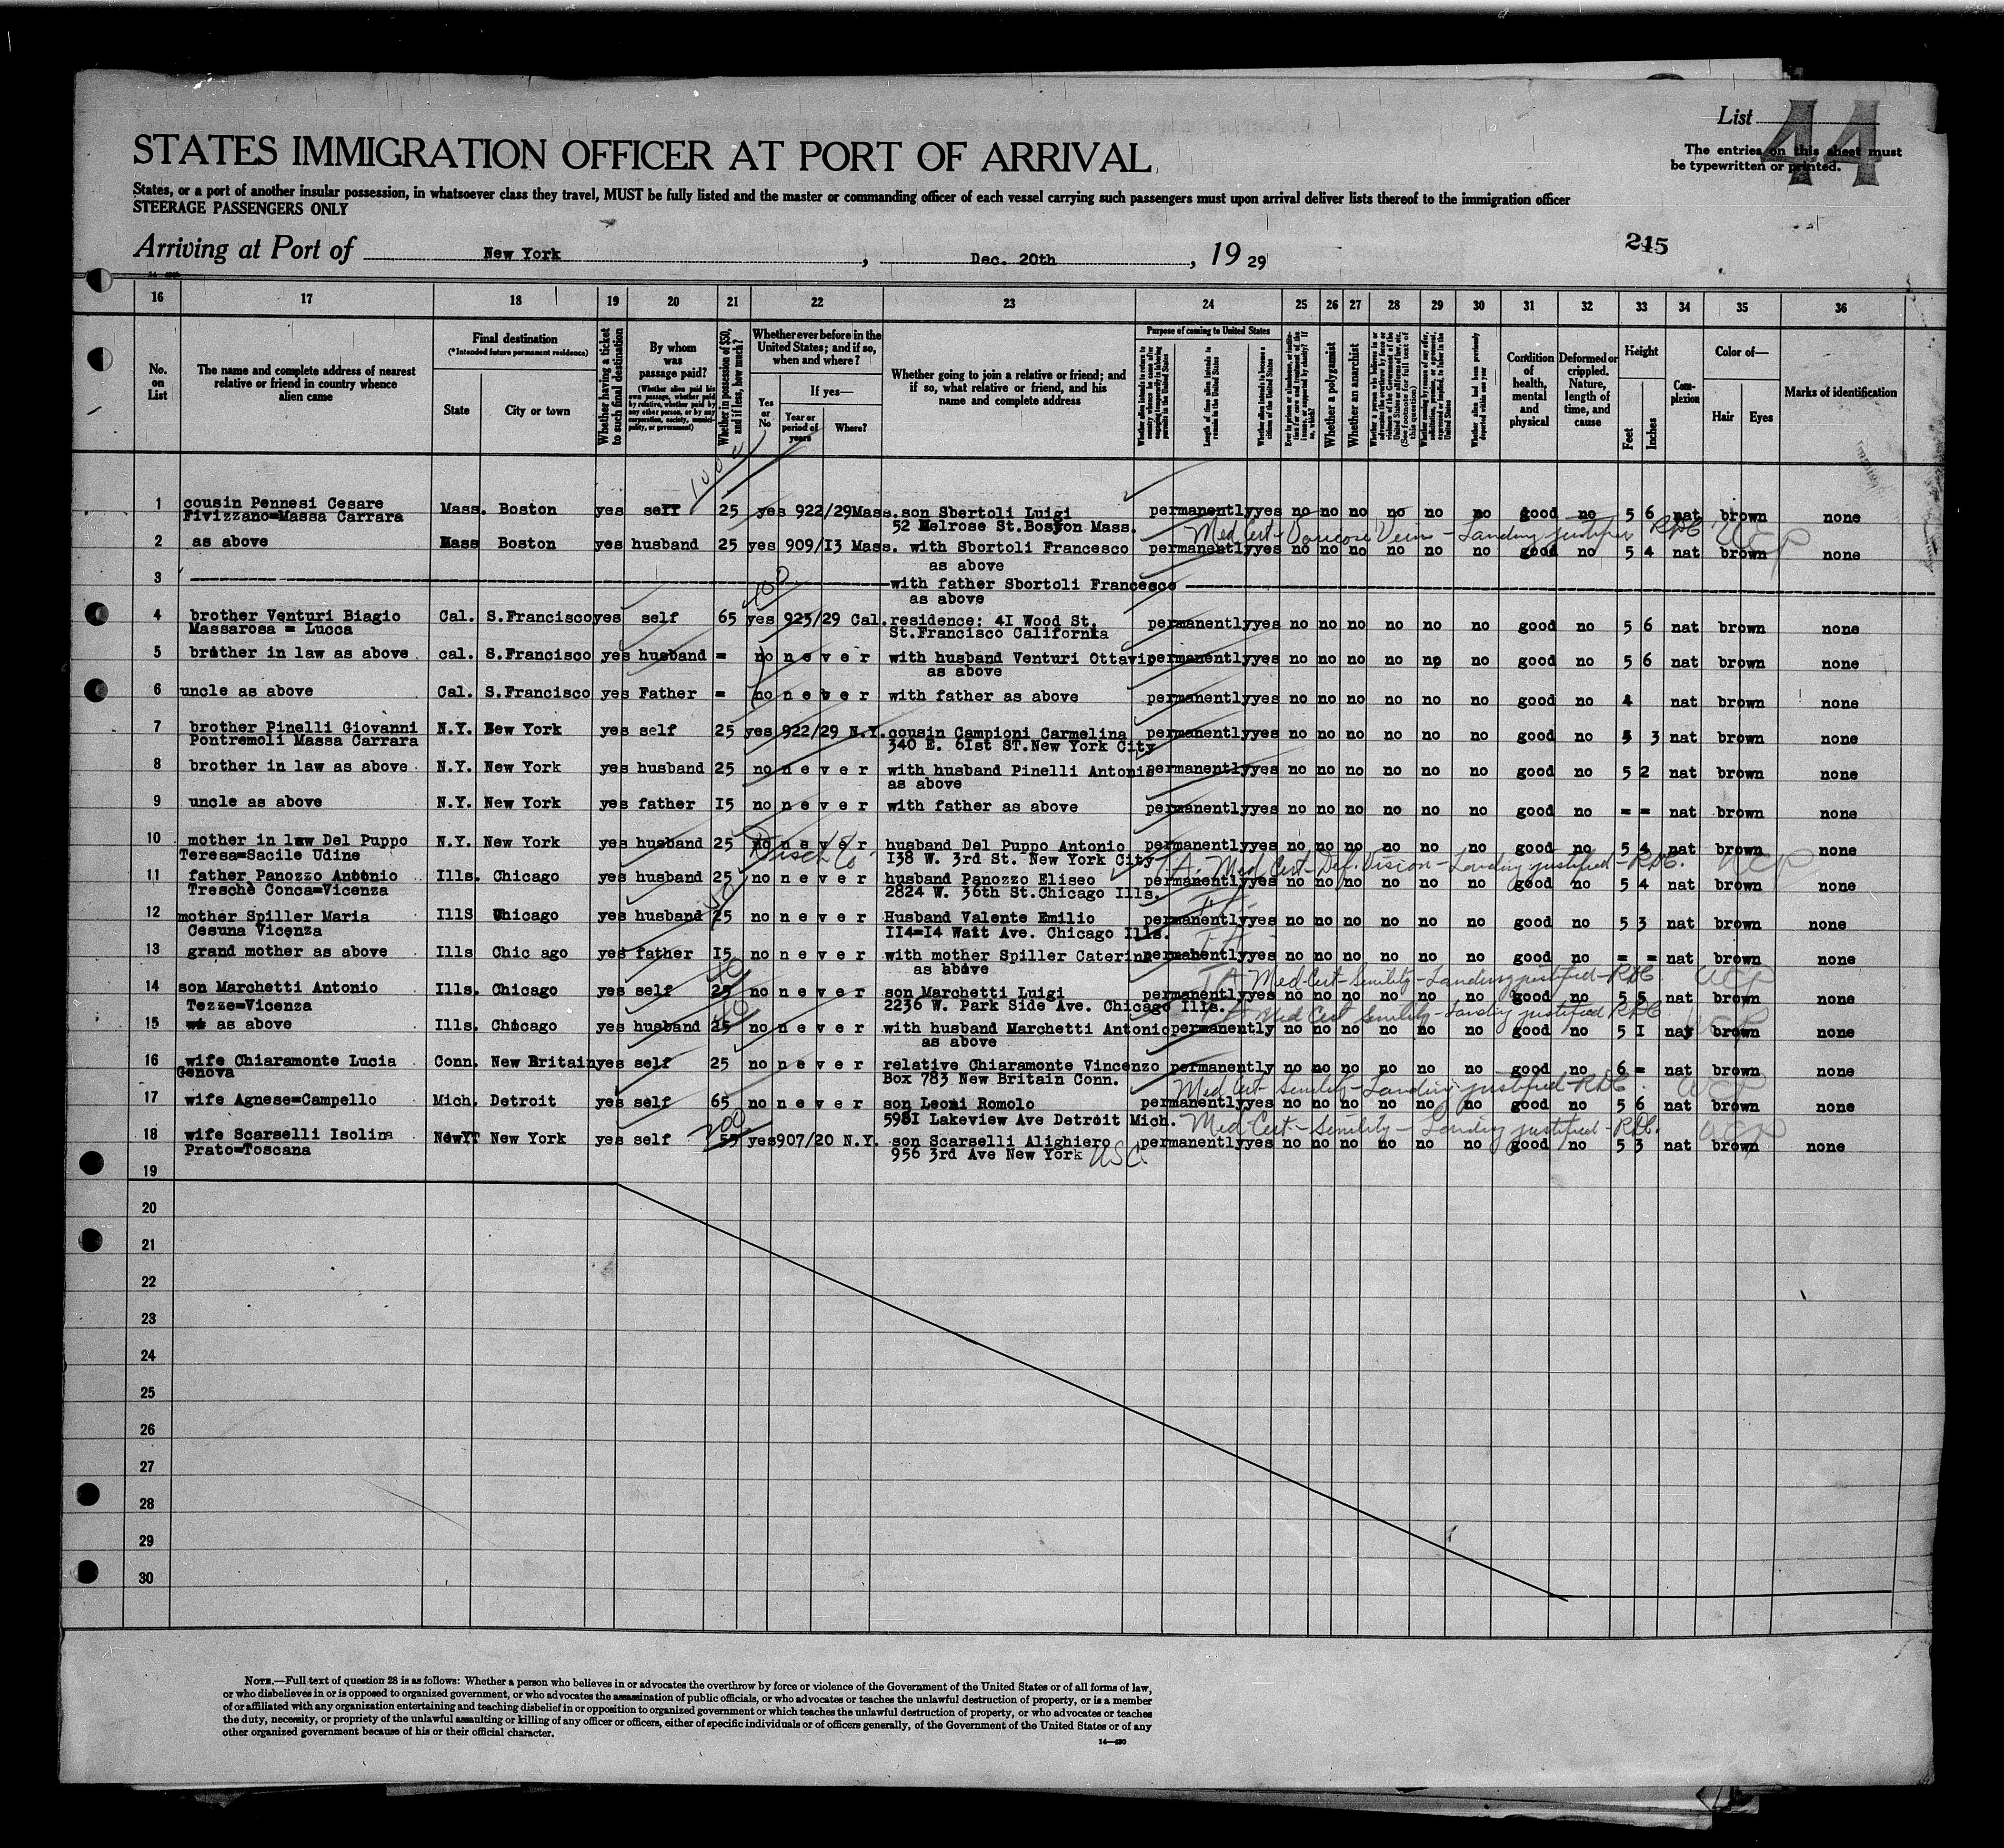 List 44
STATES IMMIGRATION OFFICER AT PORT OF ARRIVAL
The entries on this sheet must
be typewritten or printed.
States, or a port of another insular possession, in whatsoever class they travel, MUST be fully listed and the master or commanding officer of each vessel carrying such passengers must upon arrival deliver lists thereof to the immigration officer
STEERAGE PASSENGERS ONLY
Arriving at Port of New York, Dec. 20th, 19 29
245
16 17 18 19 20 21 22 23 24 25 26 27 28 29 30 31 32 33 34 35 36
No. on List
The name and complete address of nearest relative or friend in country whence alien came
Final destination
(*Intended future permanent residence)
State
City or town
Whether having a ticket to such final destination
By whom was passage paid?
(Whether alien paid his own passage, whether paid by relative, whether paid by any other person, or by any corporation, society, municipality, or government)
Whether in possession of $50, and if less, how much?
Whether ever before in the United States; and if so, when and where?
Yes or No
If yes—
Year or period of years
Where?
Whether going to join a relative or friend; and if so, what relative or friend, and his name and complete address
Purpose of coming to United States
Length of time alien intends to remain in the United States
Whether alien intends to become a citizen of the United States
Whether a polygamist
Whether an anarchist
Whether alien had been previously deported within one year
Condition of health, mental and physical
Deformed or crippled. Nature, length of time, and cause
Height
Feet
Inches
Complexion
Color of—
Hair
Eyes
Marks of identification
1 cousin Pennesi Cesare Mass. Boston yes self 25 yes 922/29 Mass. son Sbertoli Luigi permanently yes no no no no no no good no 5 6 nat brown none
Fivizzano=Massa Carrara 52 Melrose St. Boston Mass.
Med Cert - Varicose Vein - Landing justified RDC
2 as above Mass Boston yes husband 25 yes 909/I3 Mass. with Sbortoli Francesco permanently yes no no no no no no good no 5 4 nat brown none
as above
3 with father Sbortoli Francesco
as above
4 brother Venturi Biagio Cal. S.Francisco yes self 65 yes 923/29 Cal. residence: 4I Wood St. permanently yes no no no no no no good no 5 6 nat brown none
Massarosa = Lucca St.Francisco California
5 brother in law as above cal. S.Francisco yes husband = no never with husband Venturi Ottavio permanently yes no no no no no no good no 5 6 nat brown none
as above
6 uncle as above Cal. S.Francisco yes Father = no never with father as above permanently yes no no no no no no good no 4 nat brown none
7 brother Pinelli Giovanni N.Y. New York yes self 25 yes 922/29 N.Y. cousin Campioni Carmelina permanently yes no no no no no no good no 5 3 nat brown none
Pontremoli Massa Carrara 340 E. 6Ist ST.New York City
8 brother in law as above N.Y. New York yes husband 25 no never with husband Pinelli Antonio permanently yes no no no no no no good no 5 2 nat brown none
as above
9 uncle as above N.Y. New York yes father I5 no never with father as above permanently yes no no no no no no good no = = nat brown none
10 mother in law Del Puppo N.Y. New York yes husband 25 no never husband Del Puppo Antonio permanently yes no no no no no no good no 5 4 nat brown none
Teresa=Sacile Udine I38 W. 3rd St. New York City
Med Cert - Def. Vision - Landing justified - RDC.
11 father Panozzo Antonio Ills. Chicago yes husband 25 no never husband Panozzo Eliseo permanently yes no no no no no no good no 5 4 nat brown none
Tresche Conca=Vicenza 2824 W. 36th St.Chicago Ills.
12 mother Spiller Maria IllS Chicago yes husband 25 no never Husband Valente Emilio permanently yes no no no no no no good no 5 3 nat brown none
Cesuna Vicenza II4=I4 Watt Ave. Chicago Ills.
13 grand mother as above Ills Chic ago yes father I5 no never with mother Spiller Caterina permanently yes no no no no no no good no = = nat brown none
as above
Med Cert - Senility - Landing justified - RDC
14 son Marchetti Antonio Ills. Chicago yes self 25 no never son Marchetti Luigi permanently yes no no no no no no good no 5 5 nat brown none
Tezze=Vicenza 2236 W. Park Side Ave. Chicago Ills.
Med Cert Senility - Landing justified RDC
15 as above Ills. Chicago yes husband 25 no never with husband Marchetti Antonio permanently no no no no no no good no 5 I nay brown none
as above
16 wife Chiaramonte Lucia Conn. New Britain yes self 25 no never relative Chiaramonte Vincenzo permanently no no no no no no good no 6 = nat brown none
Genova Box 783 New Britain Conn.
Med Cert - Senility - Landing justified - RDC
17 wife Agnese=Campello Mich. Detroit yes self 65 no never son Leoni Romolo permanently yes no no no no no no good no 5 6 nat brown none
598I Lakeview Ave Detroit Mich.
Med Cert - Senility - Landing justified - RDC.
18 wife Scarselli Isolina NewYT New York yes self 55 200 yes 907/20 N.Y. son Scarselli Alighiero permanently yes no no no no no no good no 5 3 nat brown none
Prato=Toscana 956 3rd Ave New York USC
19
20
21
22
23
24
25
26
27
28
29
30
NOTE.—Full text of question 28 is as follows: Whether a person who believes in or advocates the overthrow by force or violence of the Government of the United States or of all forms of law,
or who disbelieves in or is opposed to organized government, or who advocates the assassination of public officials, or who advocates or teaches the unlawful destruction of property, or is a member
of or affiliated with any organization entertaining and teaching disbelief in or opposition to organized government or which teaches the unlawful destruction of property, or who advocates or teaches
the duty, necessity, or propriety of the unlawful assaulting or killing of any officer or officers, either of specific individuals or of officers generally, of the Government of the United States or of any
other organized government because of his or their official character.
14—430